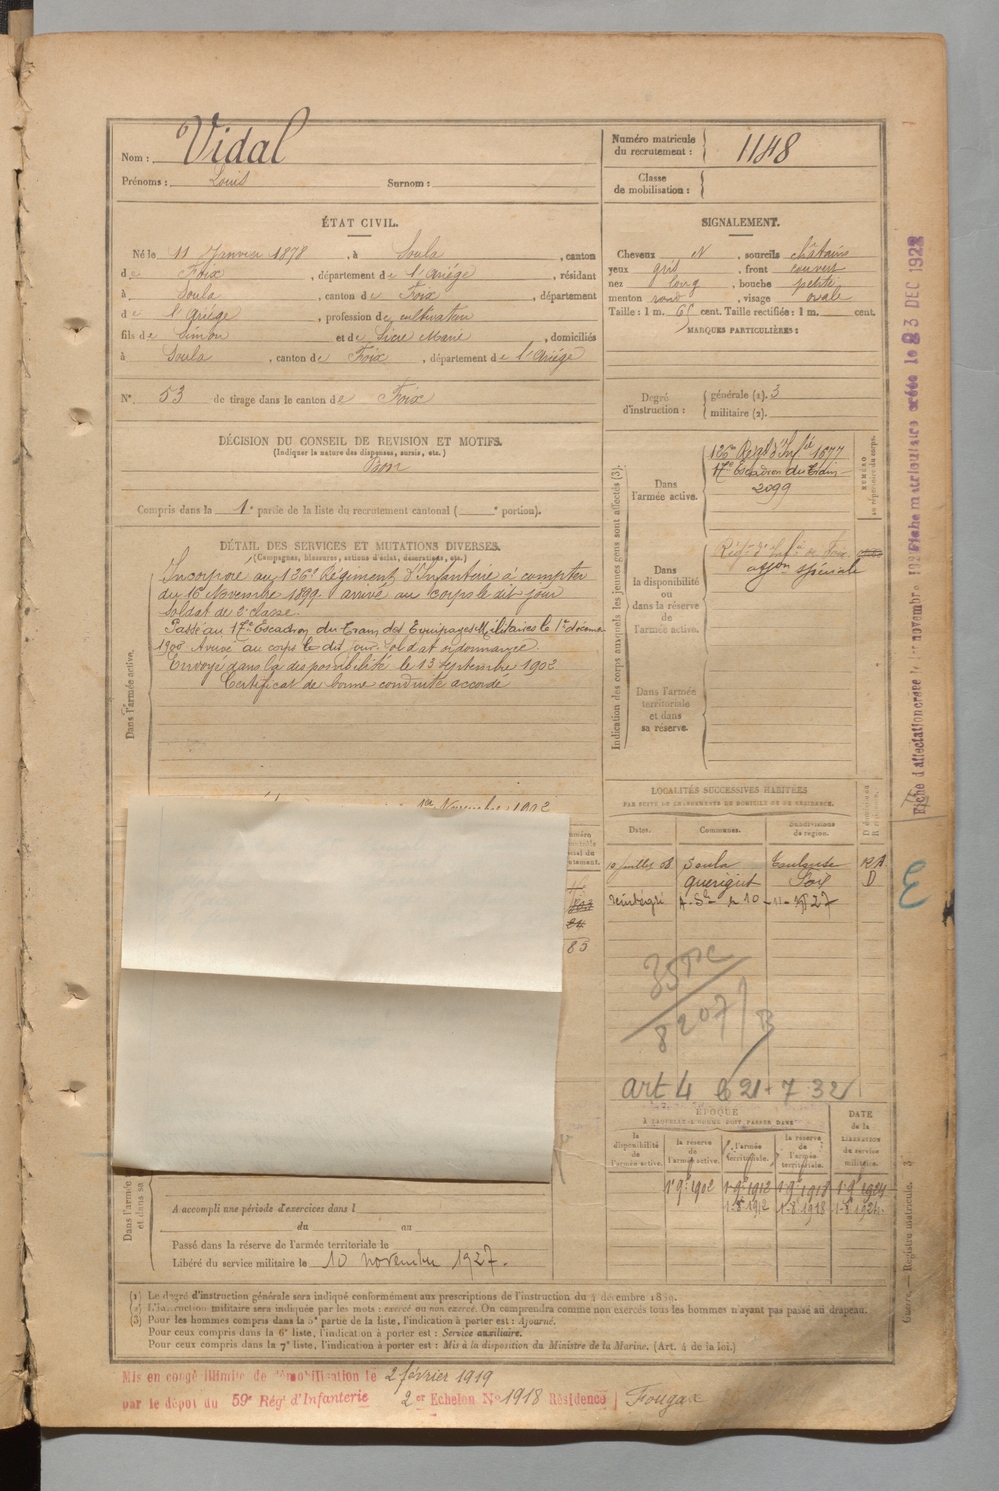 Nom : Vidal
Prénoms : Louis Surnom :
Numéro matricule du recrutement : 1148
Classe de mobilisation :
ÉTAT CIVIL.
Né le 11 Janvier 1878, à Soula, canton
de Foix, département de l'Ariége, résidant
à Soula, canton de Foix, département
de l'Ariége, profession de cultivateur
fils de Simon et de Sicre Marie, domiciliés
à Soula, canton de Foix, département de l'Ariége
N°. 53 de tirage dans le canton de Foix
SIGNALEMENT.
Cheveux N, sourcils châtains
yeux gris, front couvert
nez long, bouche petite
menton rond, visage ovale
Taille : 1 m. 65 cent. Taille rectifiée : 1 m. cent.
MARQUES PARTICULIÈRES :
Degré d'instruction : générale (1). 3
militaire (2).
DÉCISION DU CONSEIL DE REVISION ET MOTIFS.
(Indiquer la nature des dispenses, sursis, etc.)
Bon
Compris dans la 1e partie de la liste du recrutement cantonal ( e portion).
DÉTAIL DES SERVICES ET MUTATIONS DIVERSES.
(Campagnes, blessures, actions d'éclat, décorations, etc.)
Dans l'armée active.
Incorporé au 126e Régiment d'Infanterie à compter
du 16 Novembre 1899 arrivé au corps le dit jour
Soldat de 2e classe.
Passé au 17e Escadron du Train des Equipages Militaires le 1er décembre
1900 Arrivé au corps le dit jour Soldat ordonnance
Envoyé dans la disponibilité le 13 septembre 1902
Certificat de bonne conduite accordé
1er Novembre 1902
Indication des corps auxquels les jeunes gens sont affectés (3).
NUMÉRO au répertoire du corps.
Dans l'armée active.
126me Régt d'Infie 1677
17e Escadron du Train
2099
Dans la disponibilité ou dans la réserve de l'armée active.
Régt d'Infie de Foix
affon spéciale
Dans l'armée territoriale et dans sa réserve.
LOCALITÉS SUCCESSIVES HABITÉES
PAR SUITE DE CHANGEMENTS DE DOMICILE OU DE RÉSIDENCE.
Dates. Communes. Subdivisions de région.
Soula Toulouse
Querigut Foix D
83
art 4 le 21-7-32
8207
ÉPOQUE
À LAQUELLE L'HOMME DOIT PASSER DANS
la disponibilité de l'armée active.
la réserve de l'armée active.
l'armée territoriale.
la réserve de l'armée territoriale.
DATE de la LIBÉRATION du service militaire.
1 9e 1902 1-9e 1912 1 9e 1918 1 9e 1924
1-8e 1912 1-8e 1918 1-8e 1924
Dans l'armée
et dans sa
A accompli une période d'exercices dans l
du au
Passé dans la réserve de l'armée territoriale le
Libéré du service militaire le 10 novembre 1927.
(1) Le degré d'instruction générale sera indiqué conformément aux prescriptions de l'instruction du 4 décembre 1889.
(2) L'instruction militaire sera indiquée par les mots : exercé ou non exercé. On comprendra comme non exercés tous les hommes n'ayant pas passé au drapeau.
(3) Pour les hommes compris dans la 5e partie de la liste, l'indication à porter est : Ajourné.
Pour ceux compris dans la 6e liste, l'indication à porter est : Service auxiliaire.
Pour ceux compris dans la 7e liste, l'indication à porter est : Mis à la disposition du Ministre de la Marine. (Art. 4 de la loi.)
Mis en congé illimité de démobilisation le 2 février 1919
par le dépôt du 59e Rég. d'Infanterie 2er Echelon No 1918 Résidence Fougax
Guerre. — Registre matricule. 3